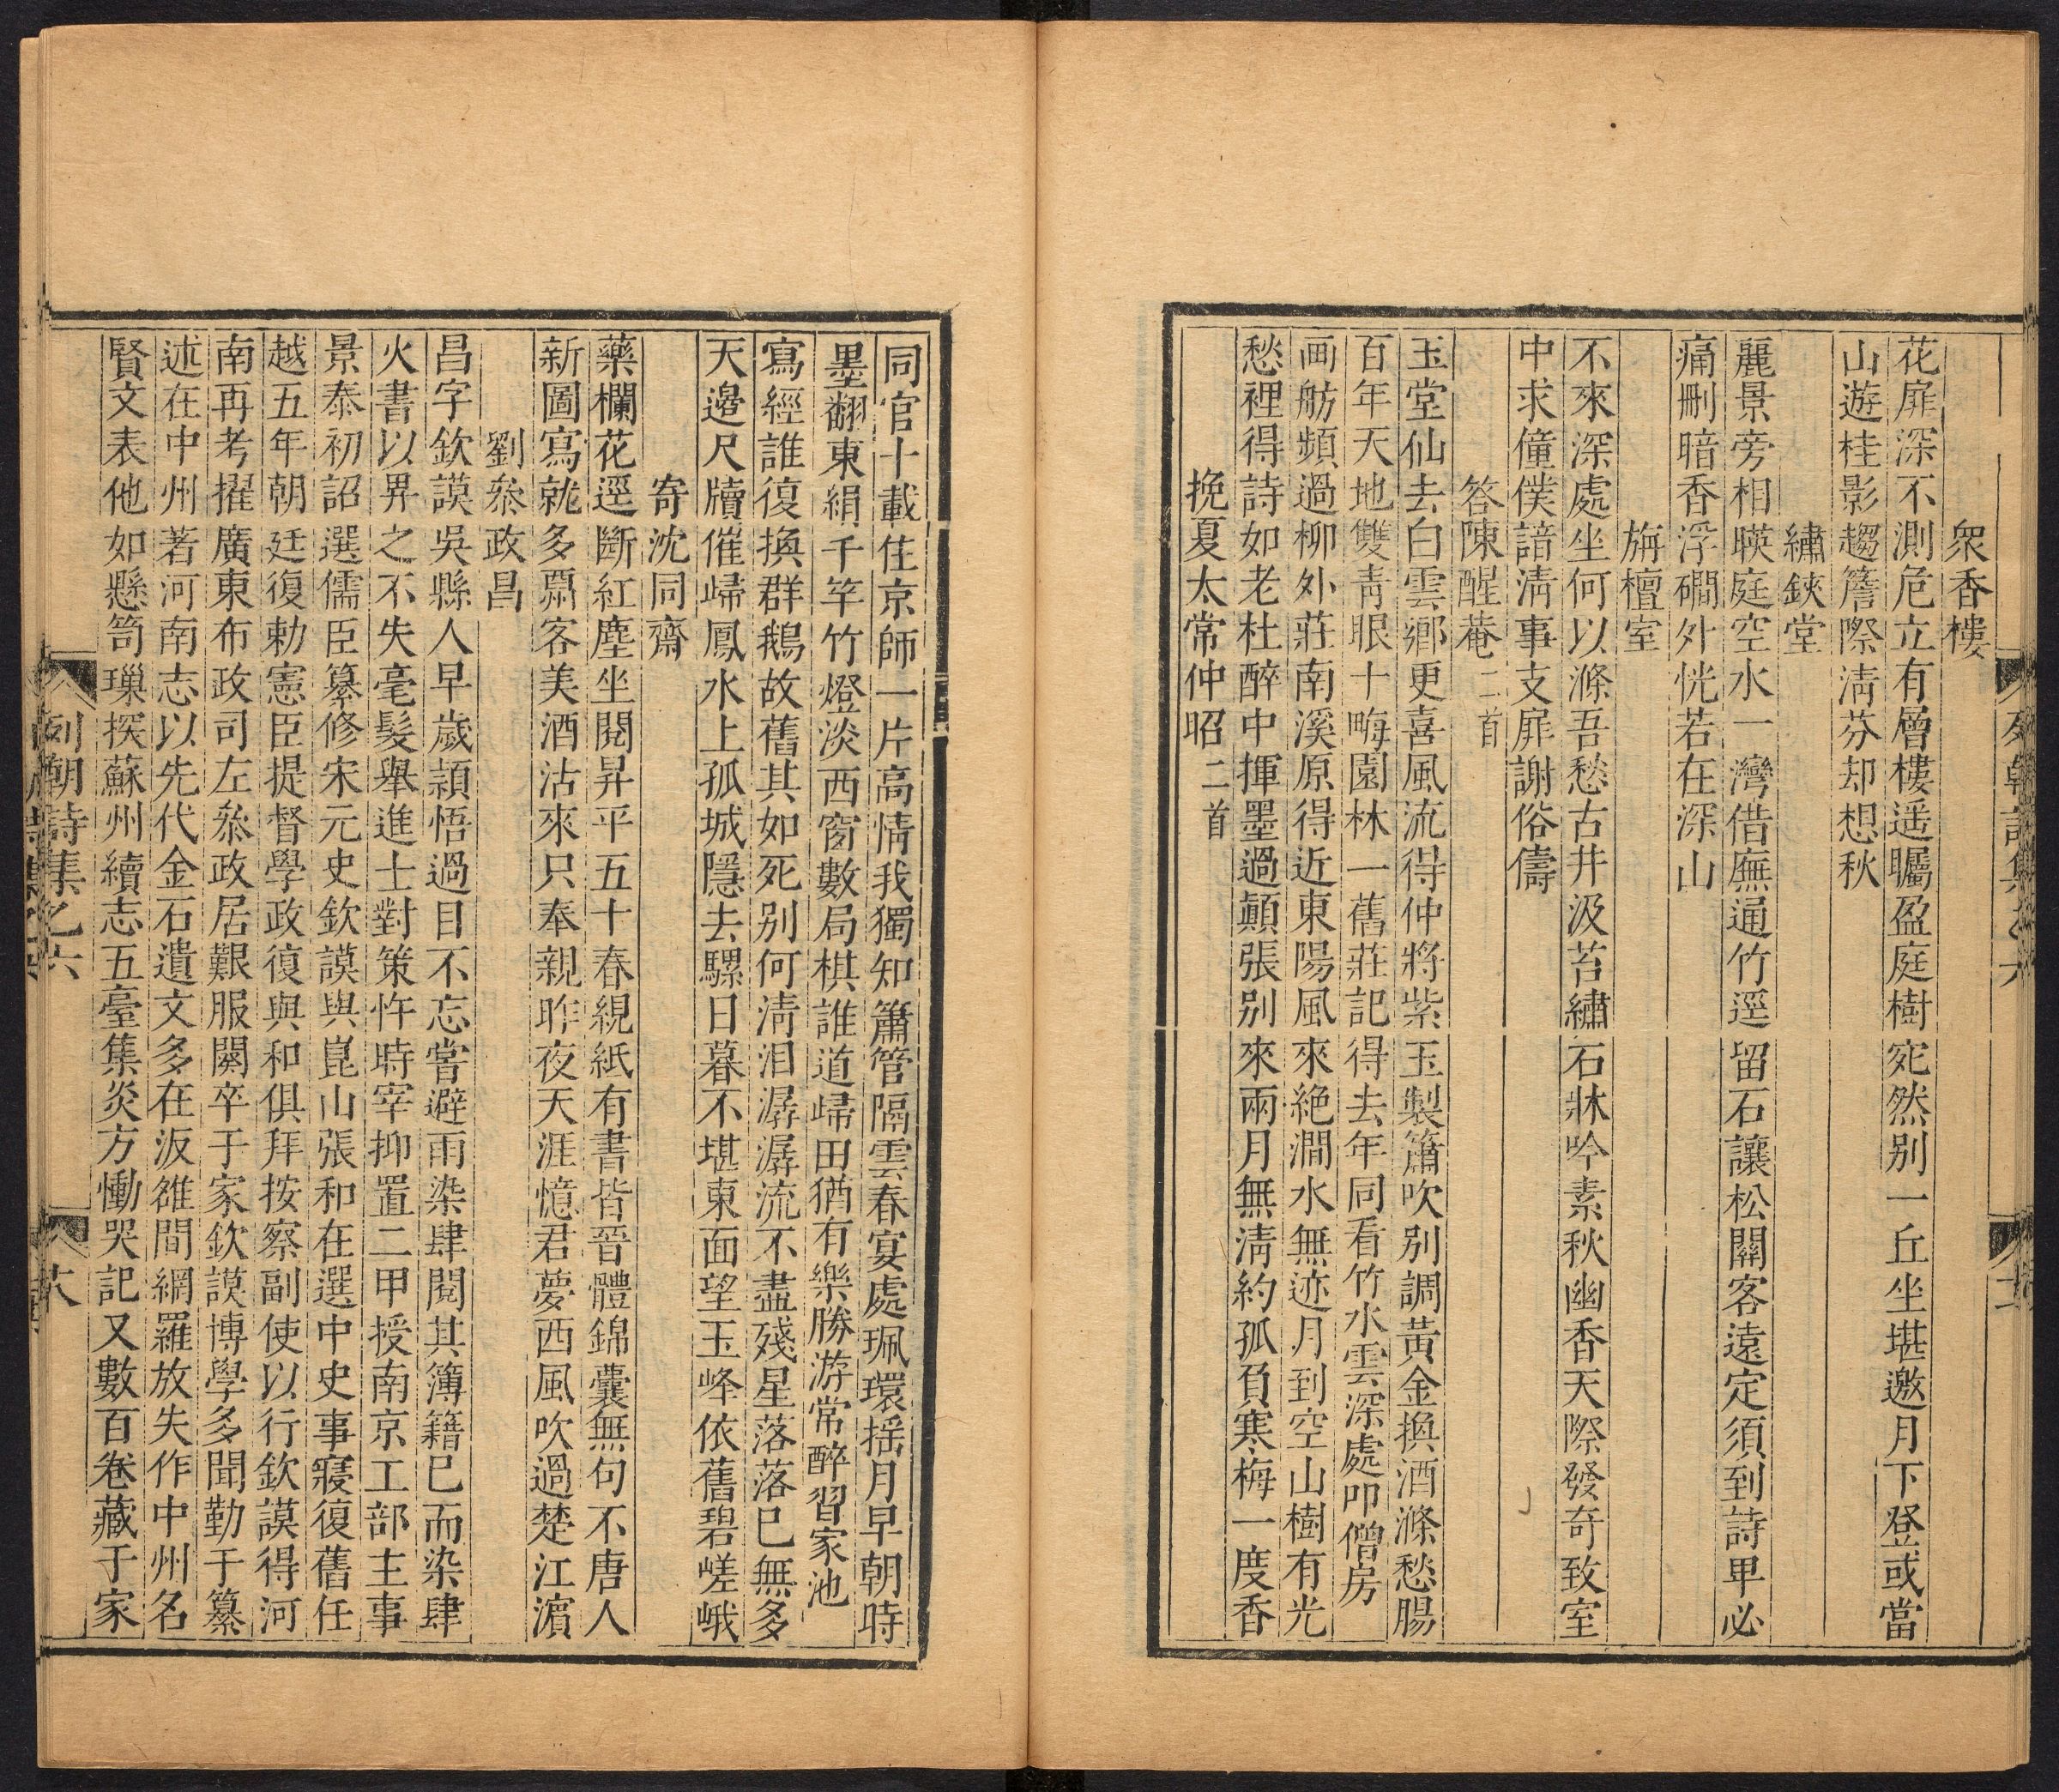 衆香樓
花扉深不測危立有層樓遥矚盈庭樹宛然别一丘坐堪邀月下登或當
山遊桂影趨簷際淸芬却想秋
繡鋏堂
麗景旁相暎庭空水一灣借廡通竹逕留石讓松關客遠定須到詩畢必
痛刪暗香浮磵外恍若在深山
旃檀室
不來深處坐何以滌吾愁古井汲苔繡石牀吟素秋幽香天際發奇致室
中求僮僕諳淸事支扉謝俗儔
答陳醒菴二首
玉堂仙去白雲鄉更喜風流得仲將紫玉製簫吹别調黃金換酒滌愁腸
百年天地雙青眼十畮園林一舊莊記得去年同看竹水雲深處叩僧房
画舫頻過柳外莊南溪原得近東陽風來絶澗水無迹月到空山樹有光
愁裡得詩如老杜醉中揮墨過顛張别來兩月無淸約孤負寒梅一度香
挽夏太常仲昭二首
同官十載住京師一片高情我獨知簫管隔雲春宴處珮環摇月早朝時
墨翻東絹千竿竹燈淡西窗數局棋誰道歸田猶有樂勝游常醉習家池
寫經誰復換群鵝故舊其如死别何淸淚潺潺流不盡殘星落落巳無多
天邊尺牘催歸鳳水上孤城隱去騾日暮不堪東面望玉峰依舊碧嵯峨
寄沈同齋
藥欄花逕斷紅塵坐閱昇平五十春繭紙有書皆晉體錦囊無句不唐人
新圖寫就多羇客美酒沽來只奉親昨夜天涯憶君夢西風吹過楚江濵
劉叅政昌
昌字欽謨吳縣人早歲頴悟過目不忘嘗避雨染肆閱其簿籍巳而染肆
火書以畀之不失毫髮舉進士對策忤時宰抑置二甲授南京工部主事
景泰初詔選儒臣纂修宋元史欽謨與崑山張和在選中史事寢復舊任
越五年朝廷復勅憲臣提督學政復與和俱拜按察副使以行欽謨得河
南再考擢廣東布政司左叅政居艱服闋卒于家欽謨博學多聞勤于纂
述在中州著河南志以先代金石遺文多在汳雒間網羅放失作中州名
賢文表他如懸笥璅探蘇州續志五臺集炎方慟哭記又數百卷藏于家
列朝詩集乙六
十八